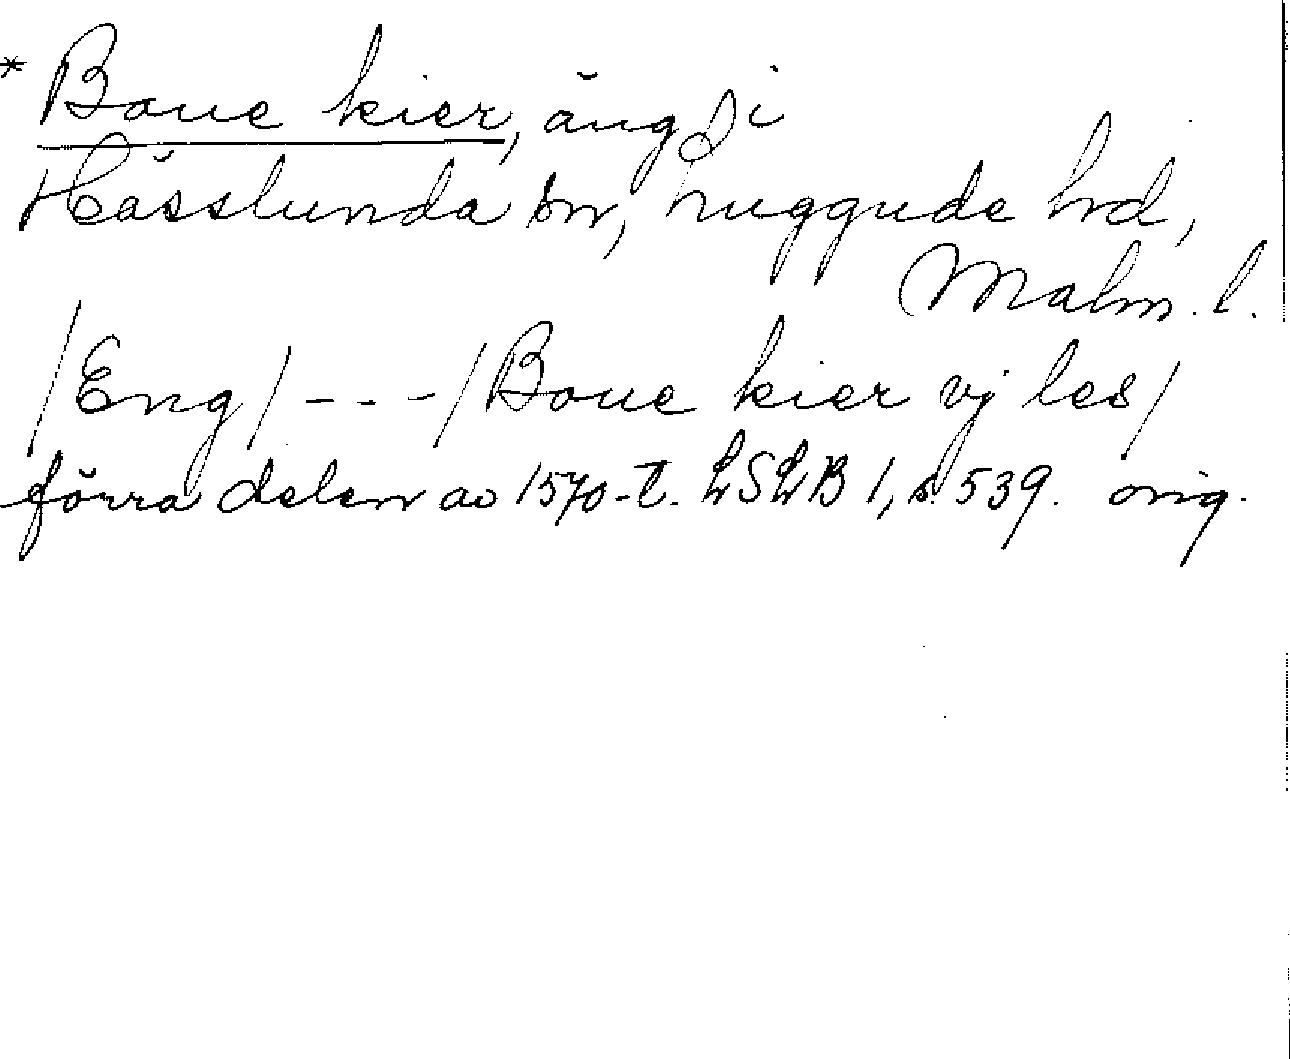 * Boue kier, äng, i
Hässlunda sn, Luggude hd,
Malm. l.
/Eng/ - - - /Boue kier vj les/
förra delen av 1570-t. LSLB 1, s. 539. orig.